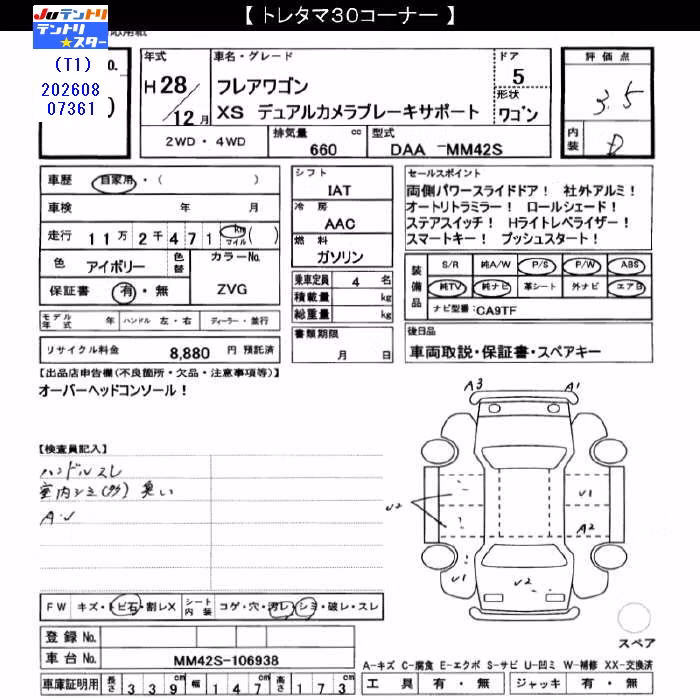 【 トレタマ30コーナー 】
JUテントリ
テントリ★スター
(T1)
202608
07361
No.
年式
H 28
12 月
車名・グレード
フレアワゴン
XS デュアルカメラブレーキサポート
ドア
5
形状
ワゴン
評価点
3.5
内装
D
2WD・4WD
排気量 660 cc
型式 DAA -MM42S
車歴 自家用・( )
車検 年 月
走行 11万2千471 km マイル ( )
色 アイボリー
色替
カラーNo. ZVG
保証書 有・無
モデル年式 年 ハンドル 左・右 ディーラー・並行
リサイクル料金 8,880 円 預託済
シフト
IAT
冷房
AAC
燃料
ガソリン
乗車定員 4 名
積載量 kg
総重量 kg
書類期限
月 日
セールスポイント
両側パワースライドドア! 社外アルミ!
オートリトラミラー! ロールシェード!
ステアスイッチ! Hライトレベライザー!
スマートキー! プッシュスタート!
装備品
S/R 純A/W P/S P/W ABS
純TV 純ナビ 革シート 外ナビ エアB
ナビ型番: CA9TF
後日品
車両取説・保証書・スペアキー
【出品店申告欄(不良箇所・欠品・注意事項等)】
オーバーヘッドコンソール!
【検査員記入】
ハンドルスレ
室内シミ(多) 臭い
A・U
A3 A1
U2
U1
A2
U1
U2
スペア
FW キズ・トビ石・割レX シート内装 コゲ・穴・汚レ・シミ・破レ・スレ
登録No.
車台No. MM42S-106938
車庫証明用 長さ 339 cm 幅 147 cm 高さ 173 cm
A-キズ C-腐食 E-エクボ S-サビ U-凹ミ W-補修 XX-交換済
工具 有・無 ジャッキ 有・無